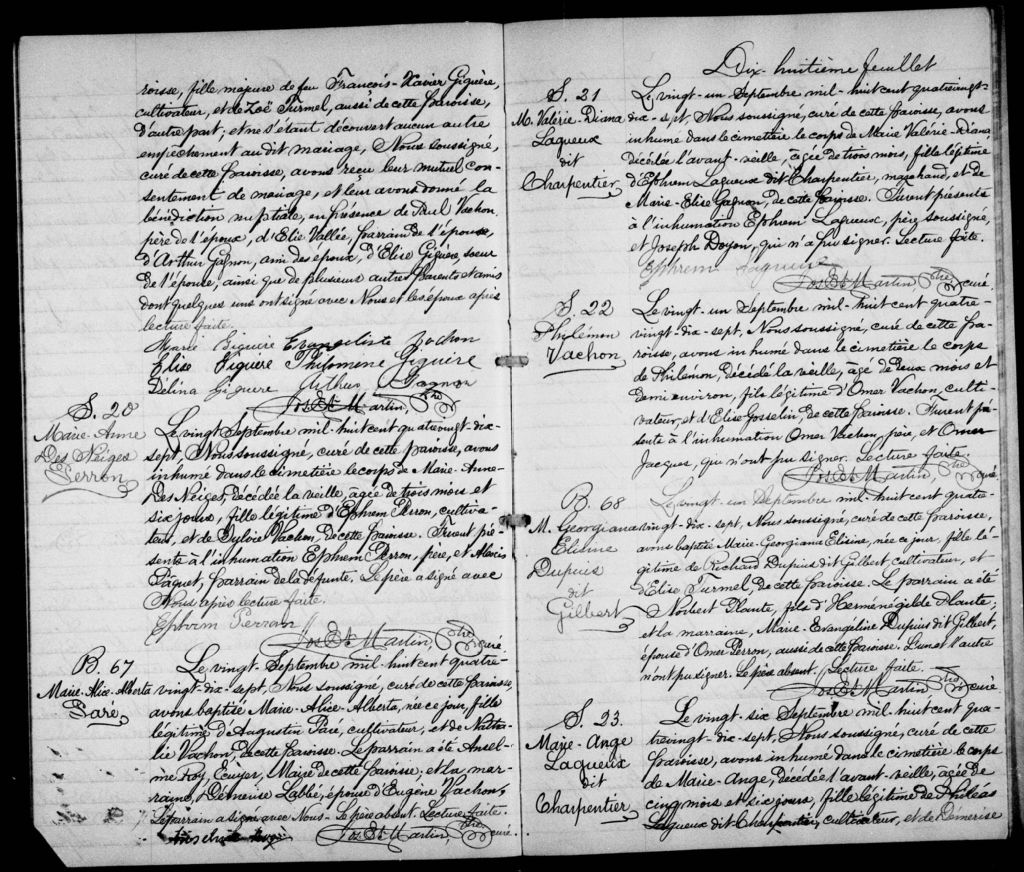 roisse, fille majeure de feu François-Xavier Giguère,
cultivateur, et de Zoé Turmel, aussi de cette paroisse,
d'autre part, et ne s'étant découvert aucun autre
empêchement au dit mariage, Nous soussigné,
curé de cette paroisse, avons reçu leur mutuel con-
sentement de mariage, et leur avons donné la
bénédiction nuptiale, en présence de Paul Vachon,
père de l'époux, d'Elie Vallée, parrain de l'épouse,
d'Arthur Gagnon, ami des époux, d'Elise Giguère, soeur
de l'épouse, ainsi que de plusieurs autres parents et amis
dont quelques uns ont signé avec Nous et les époux après
lecture faite.
Marie Giguère Evangeliste Vachon
Elise Giguère Philomène Giguère
Délina Giguere Arthur Gagnon
Jos Et Martin, Ptre
S. 20
Marie-Anne
Des Neiges
Perron
Le vingt Septembre mil-huit cent quatrevingt-dix-
sept, Nous soussigné, curé de cette paroisse, avons
inhumé dans le cimetière le corps de Marie-Anne-
Des Neiges, décédée la veille, âgée de trois mois et
six jours, fille légitime d'Ephrem Perron, cultiva-
teur, et de Sylvie Vachon, de cette paroisse. Furent pré-
sents à l'inhumation Ephrem Perron, père, et Alexis
Paquet, parrain de la défunte. Le père a signé avec
Nous après lecture faite.
Ephrim Perran
Jos Et Martin, Ptre curé
B. 67
Marie-Alice-Alberta
Paré
Le vingt Septembre mil huit cent quatre-
vingt-dix-sept, Nous soussigné, curé de cette paroisse,
avons baptisé Marie-Alice-Alberta, née ce jour, fille
légitime d'Augustin Paré, cultivateur, et de Natha-
lie Vachon, de cette paroisse. Le parrain a été Ansel-
me Roy, Ecuyer, Maire de cette paroisse, et la mar-
raine, Démerise Labbé, épouse d'Eugène Vachon,
Le parrain a signé avec Nous. Le père absent. Lecture faite.
Jos Et Martin, Ptre curé.
Dix-huitième feuillet
S. 21
M. Valérie-Diana
Lagueux
dit
Charpentier
Le vingt-un Septembre mil-huit cent quatrevingt-
dix-sept, Nous soussigné, curé de cette paroisse, avons
inhumé dans le cimetière le corps de Marie Valérie-Diana
décédée l'avant-veille, âgée de trois mois, fille légitime
d'Ephrem Lagueux dit Charpentier, marchand, et de
Marie-Elise Gagnon, de cette paroisse. Furent présents
à l'inhumation Ephrem Lagueux, père, soussigné,
et Joseph Doyon, qui n'a pu signer. Lecture faite.
Ephrem Lagueux
Jos Et Martin, Ptre curé.
S. 22
Philémon
Vachon
Le vingt-un Septembre mil-huit cent quatre-
vingt-dix-sept, Nous soussigné, curé de cette pa-
roisse, avons inhumé dans le cimetière le corps
de Philémon, décédé la veille, âgé de deux mois et
demi environ, fils légitime d'Omer Vachon, culti-
vateur, et d'Elise Gosselin, de cette paroisse. Furent pré-
sents à l'inhumation Omer Vachon, père, et Omer
Jacques, qui n'ont pu signer. Lecture faite.
Jos Et Martin, Ptre curé.
B. 68
M. Georgiana
Elisine
Dupuis
dit
Gilbert
Le vingt-un Septembre mil-huit cent quatre-
vingt-dix-sept, Nous soussigné, curé de cette paroisse,
avons baptisé Marie-Georgiana Elisine, née ce jour, fille lé-
gitime de Richard Dupuis dit Gilbert cultivateur, et
d'Elise Turmel, de cette paroisse. Le parrain a été
Norbert Plante, fils d'Herménégilde Plante,
et la marraine, Marie-Evangéline Dupuis dit Gilbert,
épouse d'Omer Perron, aussi de cette paroisse. L'un et l'autre
n'ont pu signer. Le père absent. Lecture faite.
Jos Et Martin Ptre curé.
S. 23.
Marie-Ange
Lagueux
dit
Charpentier
Le vingt-six Septembre mil-huit cent qua-
trevingt-dix-sept, Nous soussigné, curé de cette
paroisse, avons inhumé dans le cimetière le corps
de Marie-Ange, décédée l'avant-veille, âgée de
cinq mois et six jours, fille légitime de Philéas
Lagueux dit Charpentier, cultivateur, et de Démerise